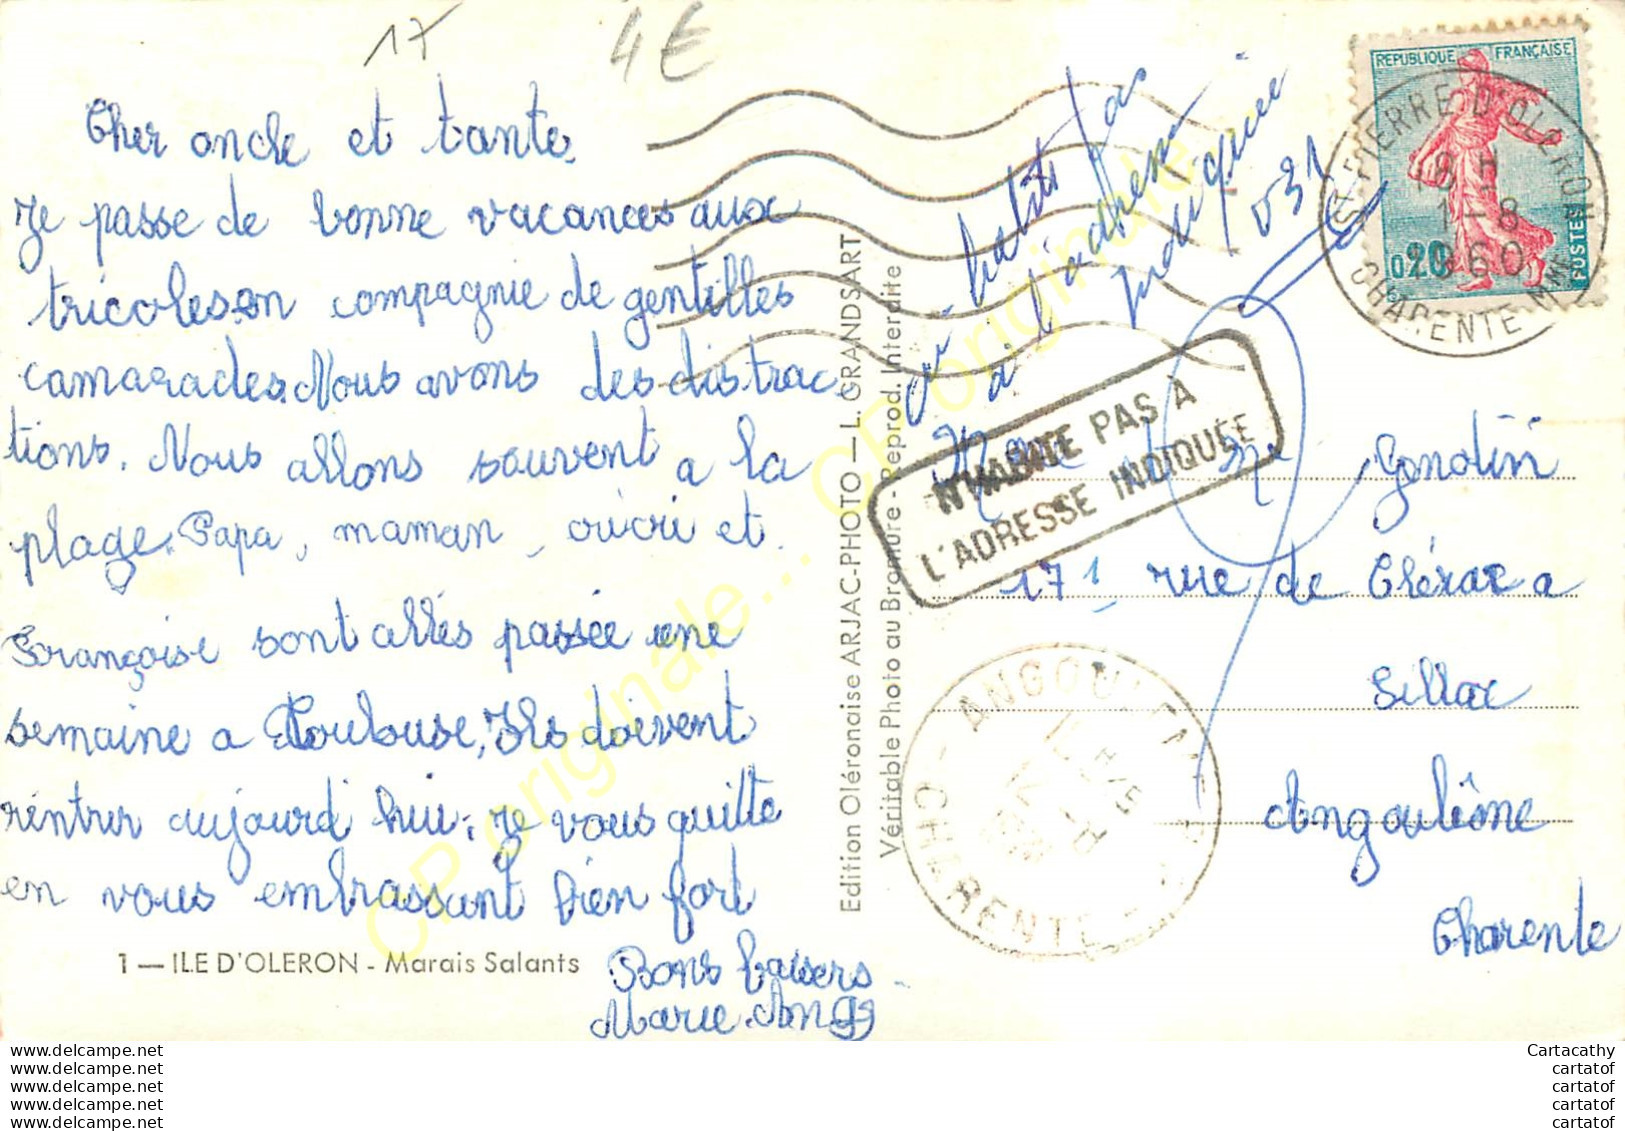 17
4€
Cher oncle et tante,
Je passe de bonne vacances aux
tricoles.en compagnie de gentilles
camarades.Nous avons des distrac
tions. Nous allons souvent a la
plage. Papa, maman, et
Françoise sont allés passée une
semaine a Toulouse, Ils doivent
rentrer aujourd hui; Je vous quitte
en vous embrassant bien fort
Bons baisers
Marie.Ange
1 — ILE D'OLERON - Marais Salants
Edition Oléronaise ARJAC-PHOTO — L. GRANDSART
Véritable Photo au Bromure - Reprod. Interdite
REPUBLIQUE FRANÇAISE
0,20
POSTES
ST PIERRE D'OLERON
18 H
1-8
1960
CHARENTE MME
n'habite pas
à l'adresse
indiquée
031
N'HABITE PAS À
L'ADRESSE INDIQUÉE
Gonolin
171 rue de
Sillac
Angoulême
Charente
ANGOULEME
CHARENTE
CP originale... CP originale
www.delcampe.net
www.delcampe.net
www.delcampe.net
www.delcampe.net
www.delcampe.net
Cartacathy
cartatof
cartatof
cartatof
cartatof